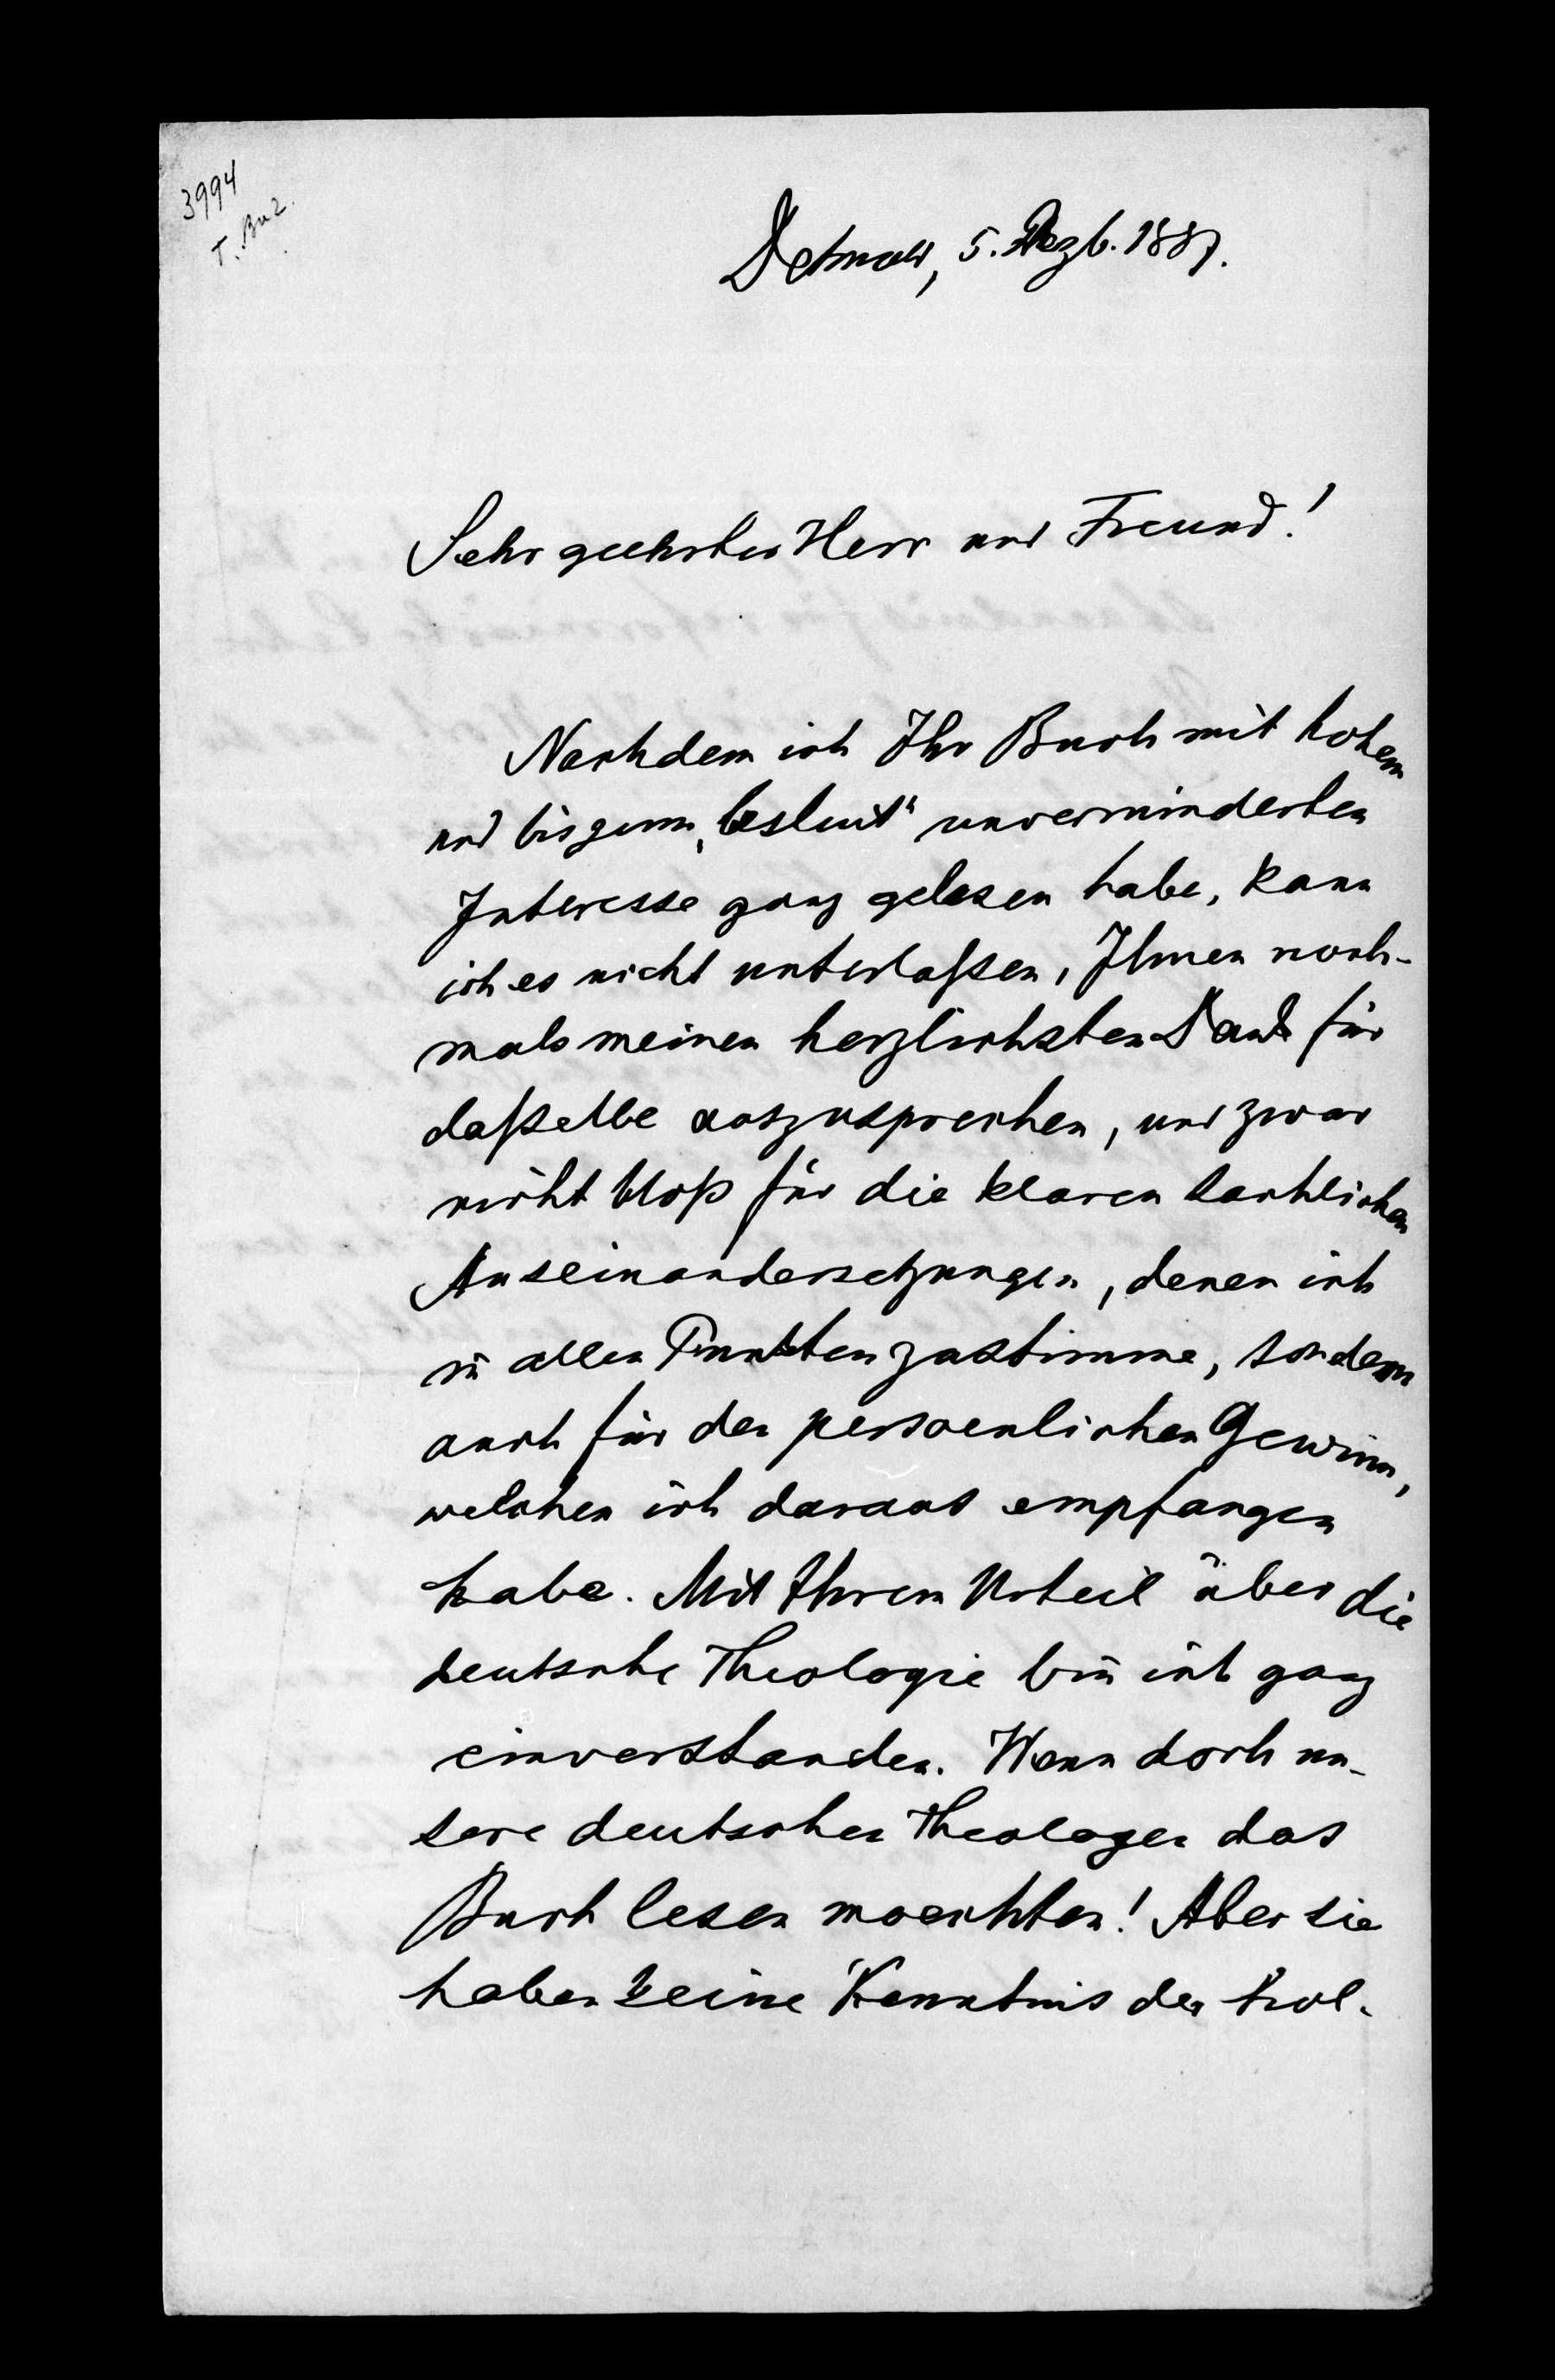 3994
T. Bu2.
Detmold, 5. Dezb. 1887.
Sehr geehrter Herr und Freund!
Nachdem ich Ihr Buch mit hohem
und bis zum „besluit“ unverminderten
Interesse ganz gelesen habe, kann
ich es nicht unterlaßen, Ihnen noch-
mals meinen herzlichsten Dank für
daßelbe auszusprechen, und zwar
nicht bloß für die klaren sachlichen
Auseinandersetzungen, denen ich
in allen Punkten zustimme, sondern
auch für den persoenlichen Gewinn,
welchen ich daraus empfangen
habe. Mit Ihrem Urteil über die
deutsche Theologie bin ich ganz
einverstanden. Wenn doch un-
sere deutschen Theologen das
Buch lesen moechten! Aber sie
haben keine Kenntnis der hol-